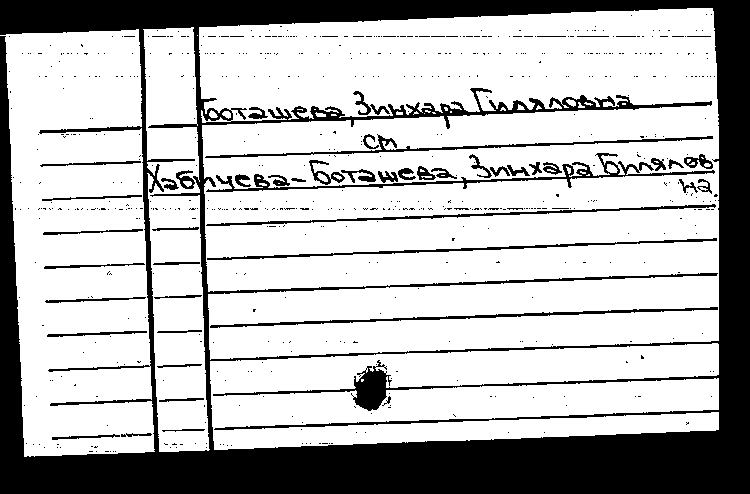 Боташева, Зинхара Гиляловна
см.
Хабичева-Боташева, Зинхара Билялов-
на.